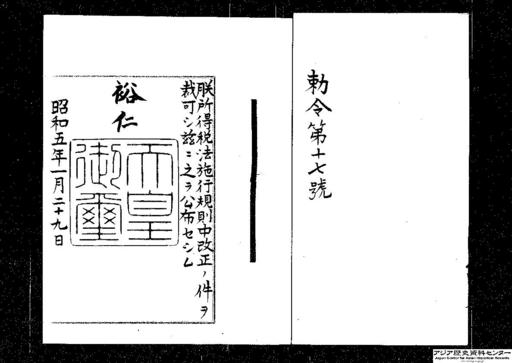 勅令第十七號
朕所得税法施行規則中改正ノ件ヲ
裁可シ茲ニ之ヲ公布セシム
裕仁
天皇御璽
昭和五年一月二十九日
アジア歴史資料センター
Japan Center for Asian Historical Records